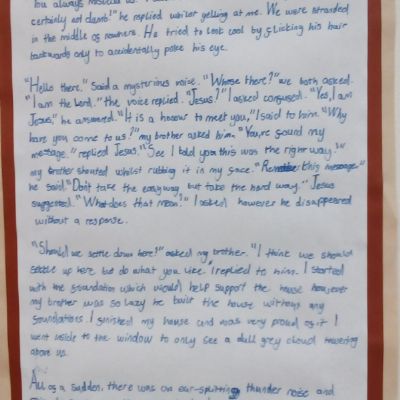 You always mislead us. I
certainly not dumb!" he replied whilst yelling at me. We were stranded
in the middle of nowhere. He tried to look cool by flicking his hair
backwards only to accidentally poke his eye.
"Hello there." Said a mysterious voice. "Whose there?" we both asked.
"I am the Lord." the voice replied. "Jesus?" I asked confused. "Yes, I am
Jesus," he answered. "It is a honour to meet you," I said to him. "Why
have you come to us?" my brother asked him. "You're found my
message." replied Jesus. "See I told you this was the right way."
my brother shouted whilst rubbing it in my face. "Remember this message"
he said. "Don't take the easy way but take the hard way." Jesus
suggested. "What does that mean?" I asked however he disappeared
without a response.
"Should we settle down here?" asked my brother. "I think we should
settle up here but do what you like, I replied to him. I started
with the foundation which would help support the house however
my brother was so lazy he built the house without any
foundations. I finished my house and was very proud of it. I
went inside to the window to only see a dull grey cloud towering
above us.
All of a sudden, there was an ear-splitting thunder noise and